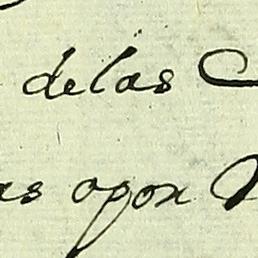 delas
as opon